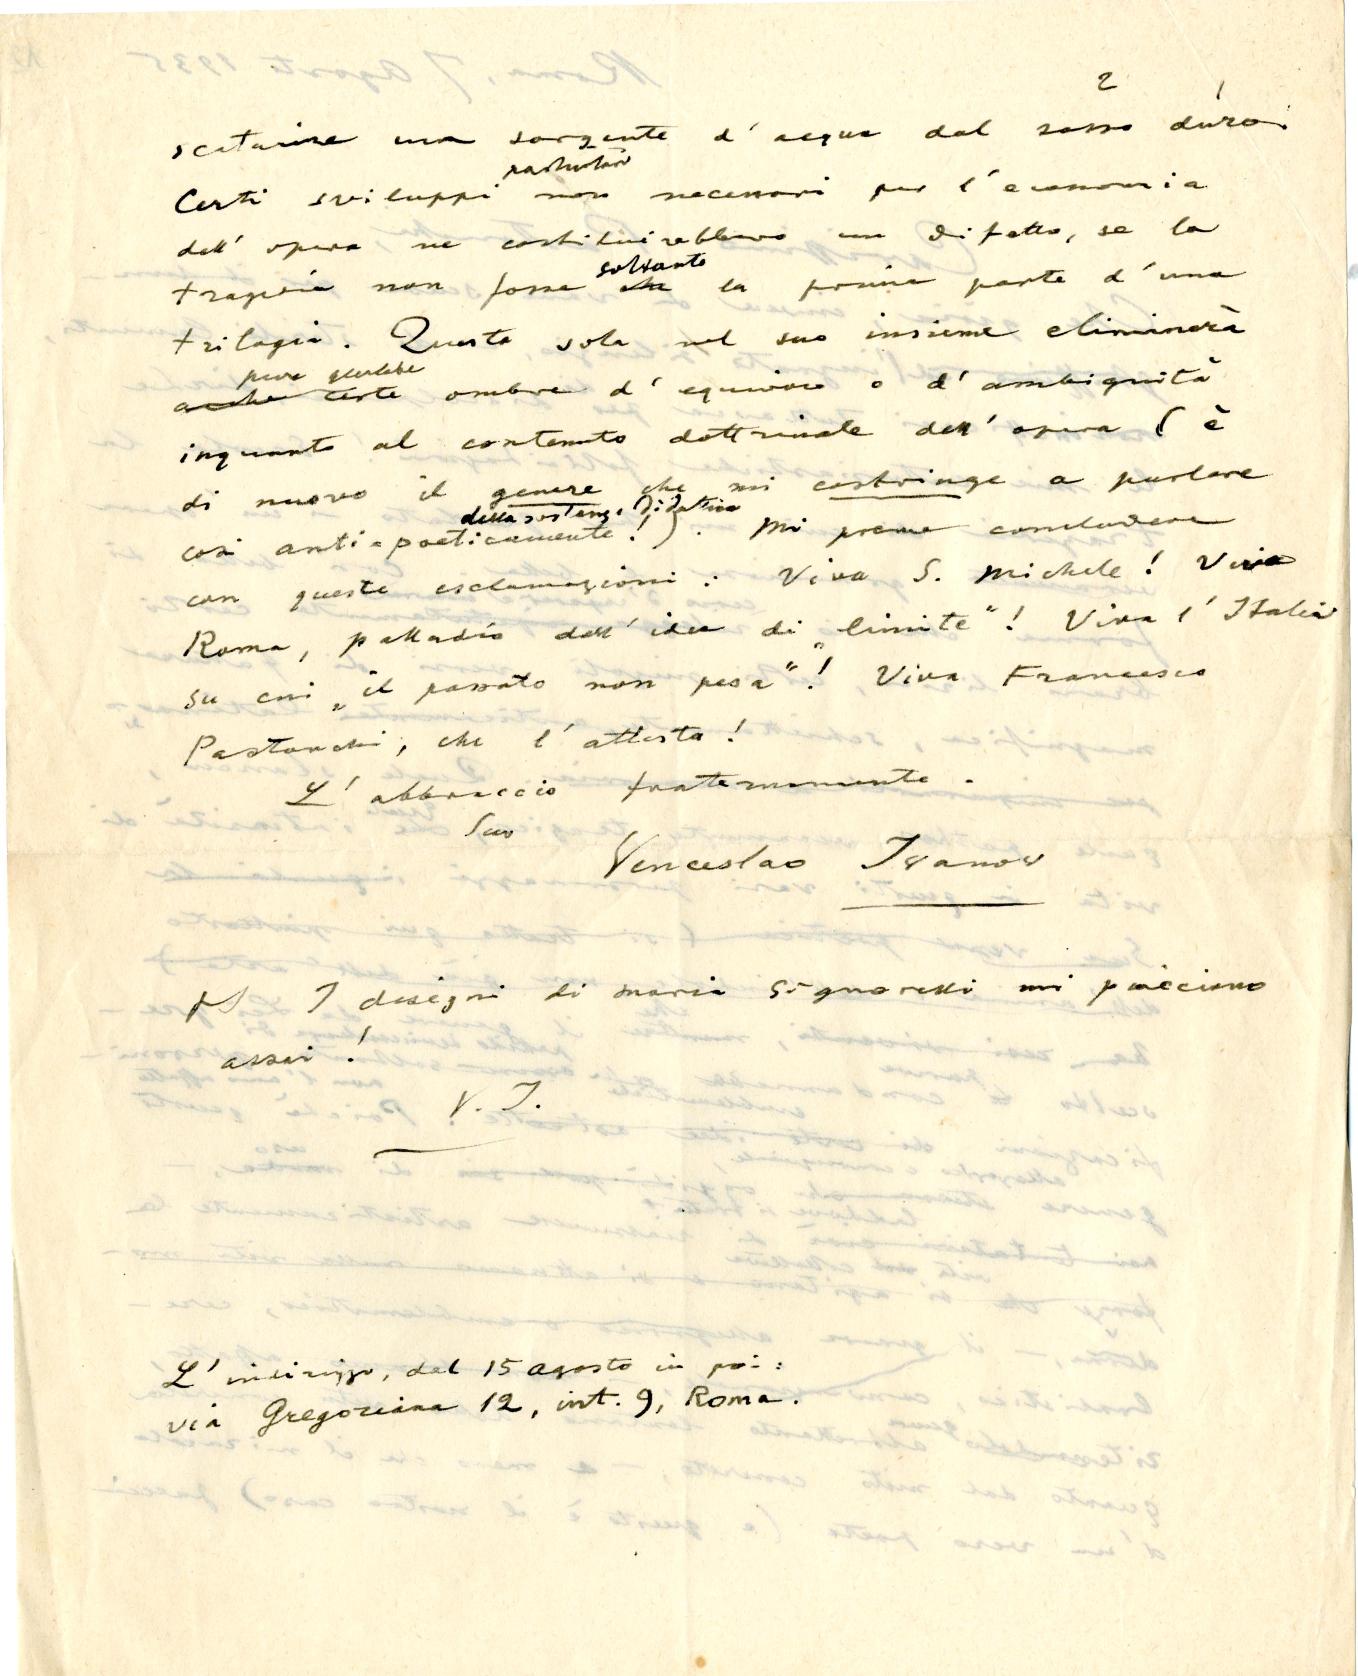 2
scaturire una sorgente d'acqua dal sasso duro.
particolari
Certi sviluppi non necessari per l'economia
dell'opera ne costituirebbero un difetto, se la
soltanto
tragedia non fosse che la prima parte d'una
trilogia. Questa sola nel suo insieme eliminerà
pure qualche
anche certe ombre d'equivoco o d'ambiguità
inquanto al contenuto dottrinale dell'opera (è
di nuovo il genere che mi costringe a parlare
della sostanza didattica
così anti-poeticamente!). Mi preme concludere
con queste esclamazioni: Viva S. Michele! Viva
Roma, palladio dell'idea di „limite“! Viva l'Italia
su cui „il passato non pesa“! Viva Francesco
Pastonchi, che l'attesta!
L'abbraccio fraternamente.
Suo
Venceslao Ivanow
PS I disegni di Maria Signorelli mi piacciono
assai!
V. I.
L'indirizzo, dal 15 agosto in poi:
via Gregoriana 12, int. 9, Roma.